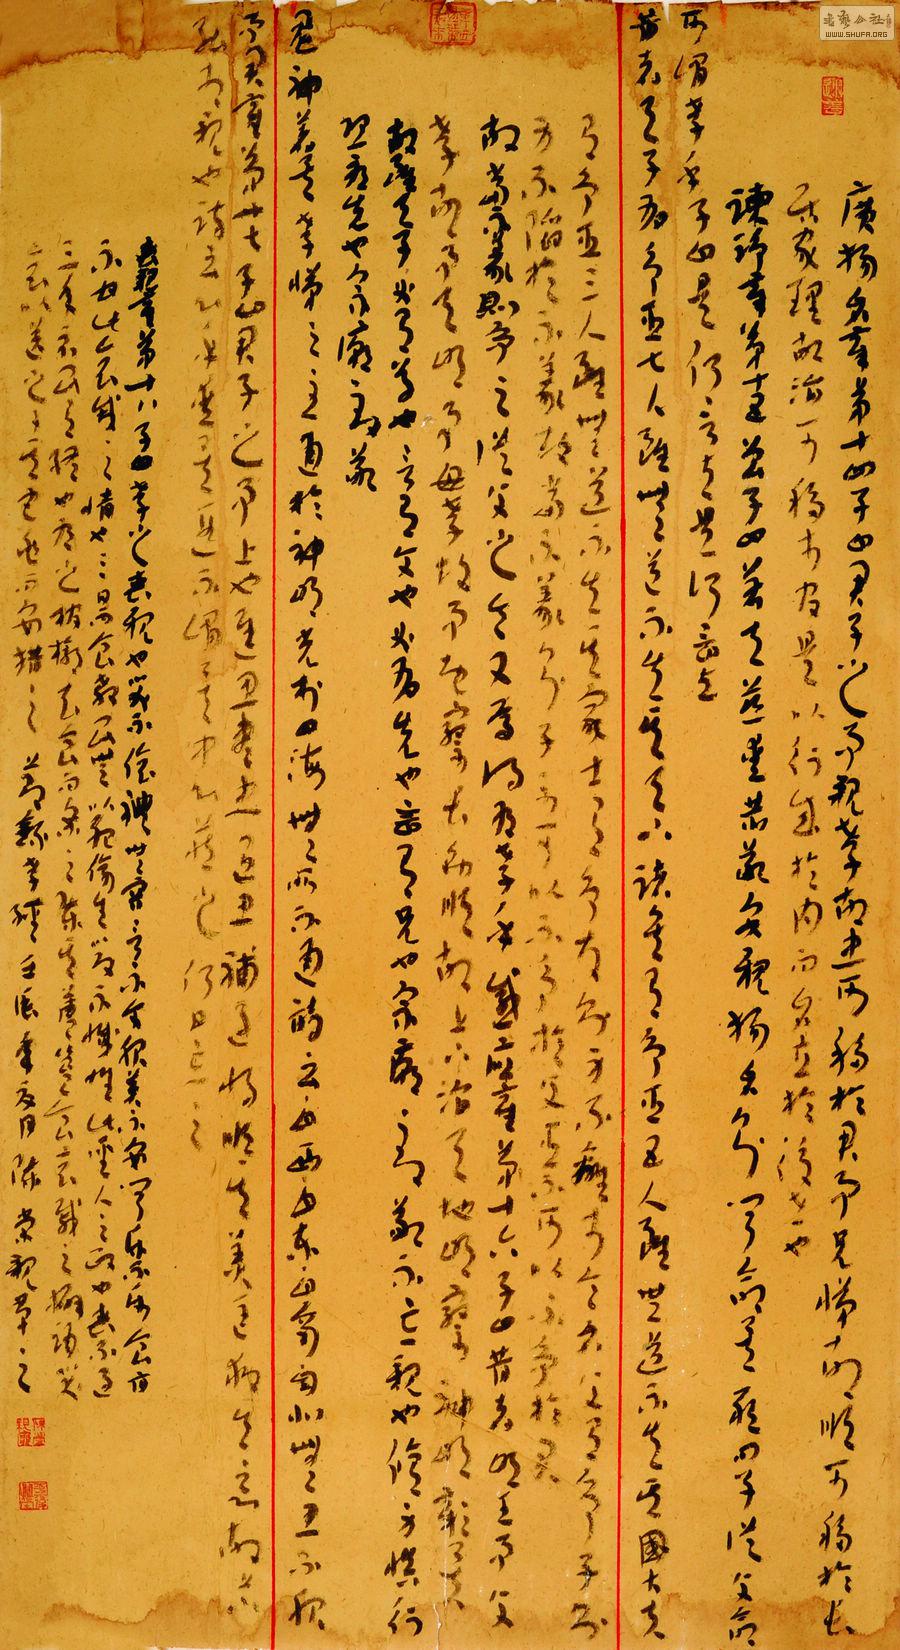 廣揚名章第十四子曰君子之事親孝故忠可移於君事兄悌故順可移於長
居家理故治可移於官是以行成於內而名立於後世也
諫諍章第十五曾子曰若夫慈愛恭敬安親揚名則聞命矣敢問子從父命
可謂孝乎子曰是何言與是何言與
昔者天子有爭臣七人雖無道不失其天下諸侯有爭臣五人雖無道不失其國大夫
有爭臣三人雖無道不失其家士有爭友則身不離於令名父有爭子則
身不陷於不義故當不義則子不可以不爭於父臣不可以不爭於君
故當不義則爭之從父之令又焉得為孝乎感應章第十六子曰昔者明王事父
孝故事天明事母孝故事地察長幼順故上下治天地明察神明彰矣
故雖天子必有尊也言有父也必有先也言有兄也宗廟致敬不忘親也修身慎行
恐辱先也宗廟致敬
鬼神著矣孝悌之至通於神明光於四海無所不通詩云自西自東自南自北無思不服
事君章第十七子曰君子之事上也進思盡忠退思補過將順其美匡救其惡故上下
能相親也詩云心乎愛矣遐不謂矣中心藏之何日忘之
喪親章第十八子曰孝子之喪親也哭不偯禮無容言不文服美不安聞樂不樂食旨
不甘此哀戚之情也三日而食教民無以死傷生毀不滅性此聖人之政也喪不過
三年示民有終也為之棺槨衣衾而舉之陳其簠簋而哀戚之擗踊哭
泣哀以送之卜其宅兆而安措之 節錄孝經壬辰年夏月陳榮親草之
WWW.SHUFA.ORG